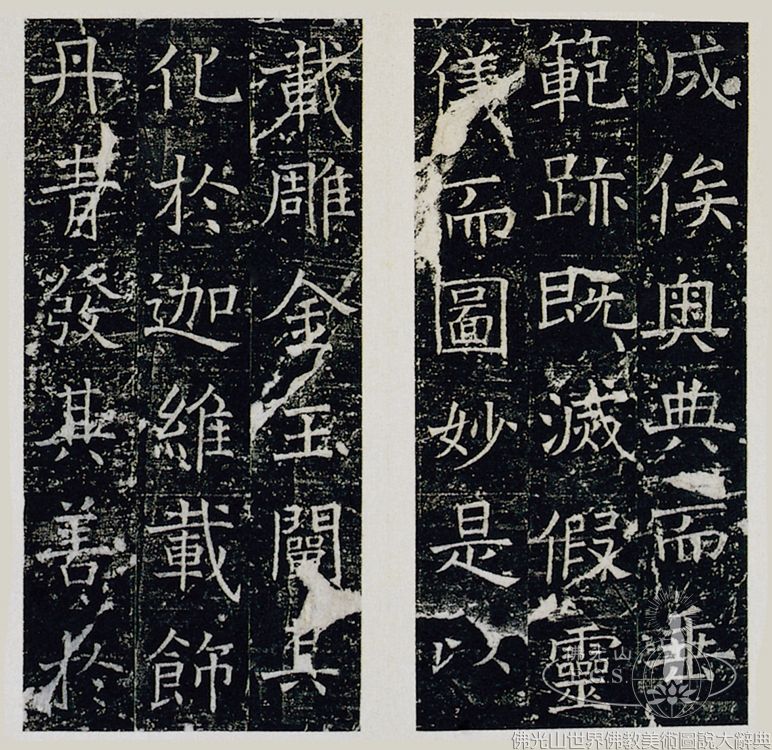 成俟奧典而垂
範跡既滅假靈
儀而圖妙是以
載雕金玉闡其
化於迦維載飾
丹青發其善於
佛光山
佛光山世界佛教美術圖說大辭典